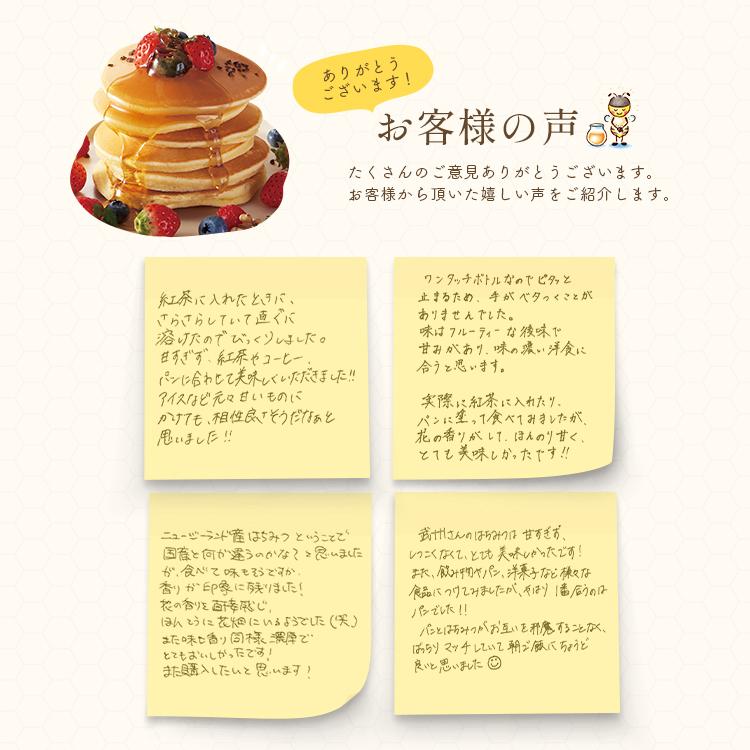 ありがとう
ございます！
お客様の声
たくさんのご意見ありがとうございます。
お客様から頂いた嬉しい声をご紹介します。
紅茶に入れたときに、
さらさらしていて直ぐに
溶けたのでびっくりしました。
甘すぎず、紅茶やコーヒー、
パンに合わせて美味しくいただきました!!
アイスなど元々甘いものに
かけても、相性良さそうだなぁと
思いました!!
ワンタッチボトルなのでピタッと
止まるため、手がベタつくことが
ありませんでした。
味はフルーティーな後味で
甘みがあり、味の濃い洋食に
合うと思います。
実際に紅茶に入れたり、
パンに塗って食べてみましたが、
花の香りがして、ほんのり甘く、
とても美味しかったです!!
ニュージーランド産はちみつということで
国産と何が違うのかな？と思いました
が、食べて味もそうですが、
香りが印象に残りました！
花の香りを直接感じ、
ほんとうに花畑にいるようでした(笑)
また味も香り同様、濃厚で
とてもおいしかったです！
また購入したいと思います！
さんのはちみつは甘すぎず、
しつこくなくて、とても美味しかったです！
また、飲み物やパン、洋菓子など様々な
食品につけてみましたが、やはり1番合うのは
パンでした!!
パンとはちみつがお互いを邪魔することなく、
ばっちりマッチしていて朝ご飯にちょうど
良いと思いました